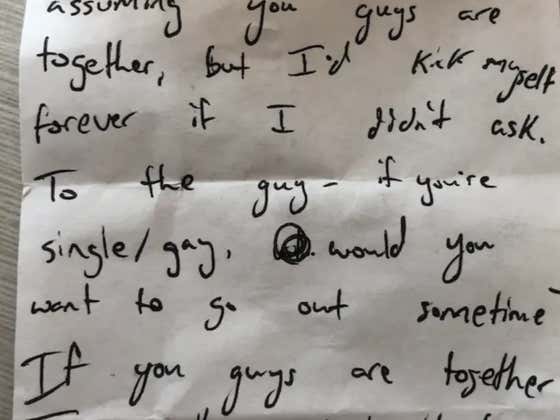 assuming you guys are
together, but I'd kick myself
forever if I didn't ask.
To the guy - if you're
single/gay, would you
want to go out sometime
If you guys are together